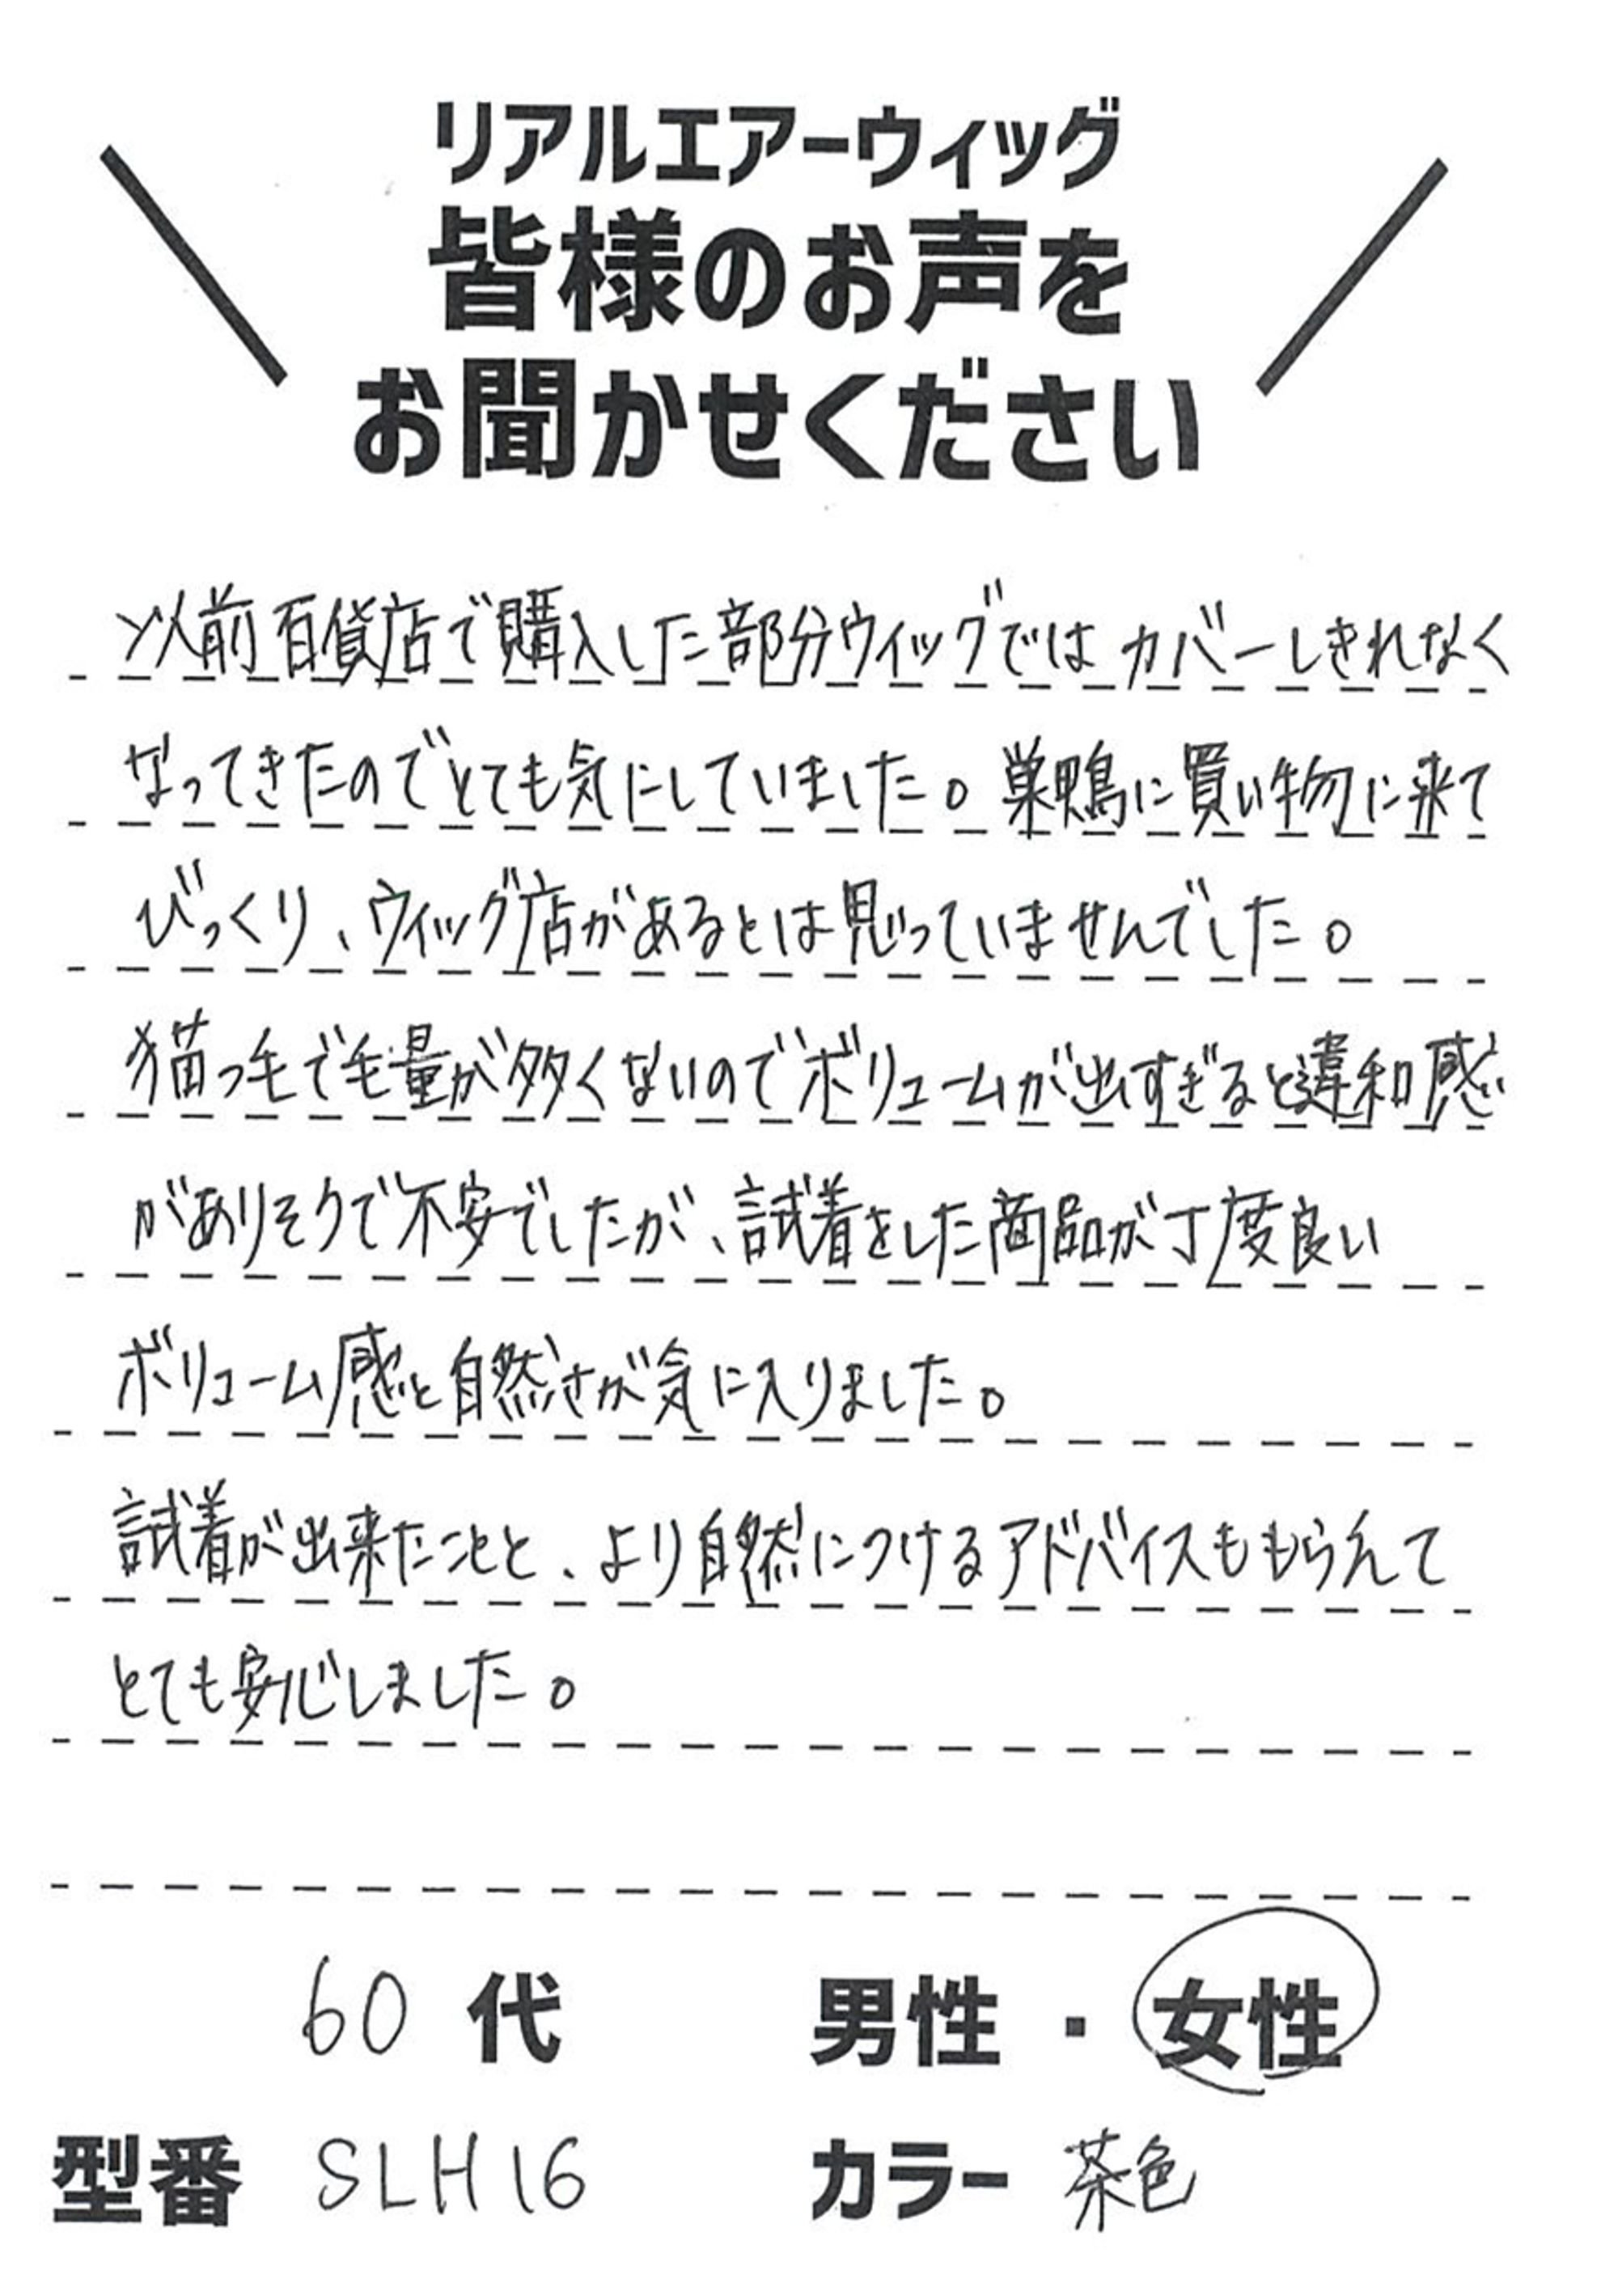 リアルエアーウィッグ
皆様のお声を
お聞かせください
以前百貨店で購入した部分ウィッグではカバーしきれなく
なってきたのでとても気にしていました。巣鴨に買い物に来て
びっくり、ウィッグ店があるとは思っていませんでした。
猫っ毛で毛量が多くないのでボリュームが出すぎると違和感
がありそうで不安でしたが、試着をした商品が丁度良い
ボリューム感と自然さが気に入りました。
試着が出来たことと、より自然につけるアドバイスももらえて
とても安心しました。
60代 男性・女性
型番 SLH16 カラー 茶色